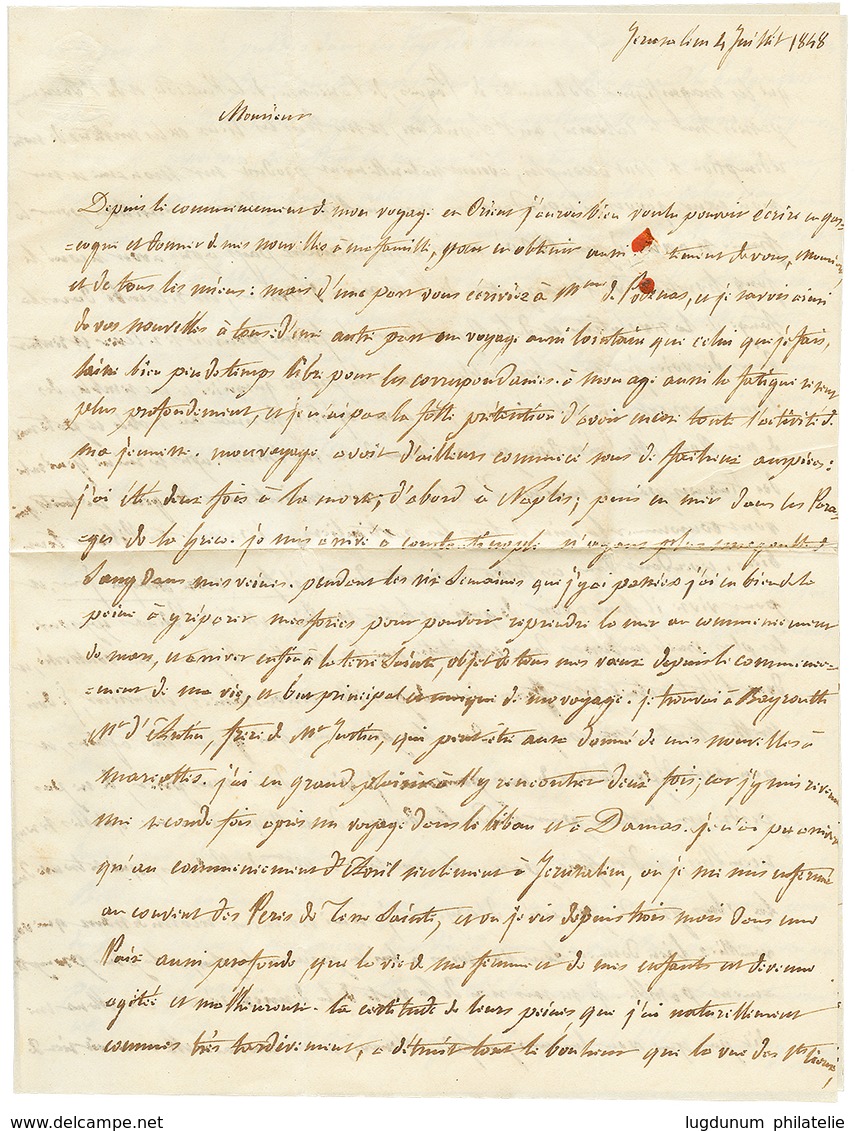 Jerusalem 4 Juillet 1848
Monsieur
Depuis le commencement de mon voyage en Orient j'aurois bien voulu pouvoir écrire en gas-
=cogne et donner de mes nouvelles à ma famille, pour en obtenir aussi tement de vous, Monsieur
et de tous les miens: mais d'une part vous écriviez à Mme de et je savois ainsi
de vos nouvelles à tous. d'une autre part un voyage aussi lointain que celui que je fais,
laisse bien peu de temps libre pour les correspondances. à mon age aussi la fatigue se sent
plus profondement, et je n'ai pas la folle prétention d'avoir encore toute l'activité de
ma jeunesse. mon voyage avoit d'ailleurs commencé sous de facheux auspices:
j'ai été deux fois à la mort; d'abord à Naples; puis en mer dans les Para-
=ges de la Grece. je suis arrivé à constantinople n'ayant plus une goutte de
Sang dans mes veines. pendant les six Semaines que j'y ai passées j'ai eu bien de la
peine à y réparer mes forces pour pouvoir reprendre la mer au commencement
de mars, et arriver enfin à la terre Sainte, objet de tous mes vœux depuis le commence-
=ment de ma vie, et but principal et unique de mon voyage. je trouvai à Bayrouth
Mr d' frere de Mr Justin, qui peut-être aura donné de mes nouvelles à
j'ai eu grand plaisir à l'y rencontrer deux fois; car j'y suis revenu
une seconde fois après un voyage dans le liban et à Damas. je n'ai pu arriver
qu'au commencement d'Avril seulement à Jerusalem, où je me suis enfermé
au couvent des Peres de Terre Sainte, et où je vis depuis trois mois dans une
Paix aussi profonde que la vie de ma femme et de mes enfants est devenue
agitée et malheureuse. la certitude de leurs peines que j'ai naturellement
connues très tardivement, a détruit tout le bonheur que la vue des Sts lieux,
www.delcampe.net
lugdunum philatelie